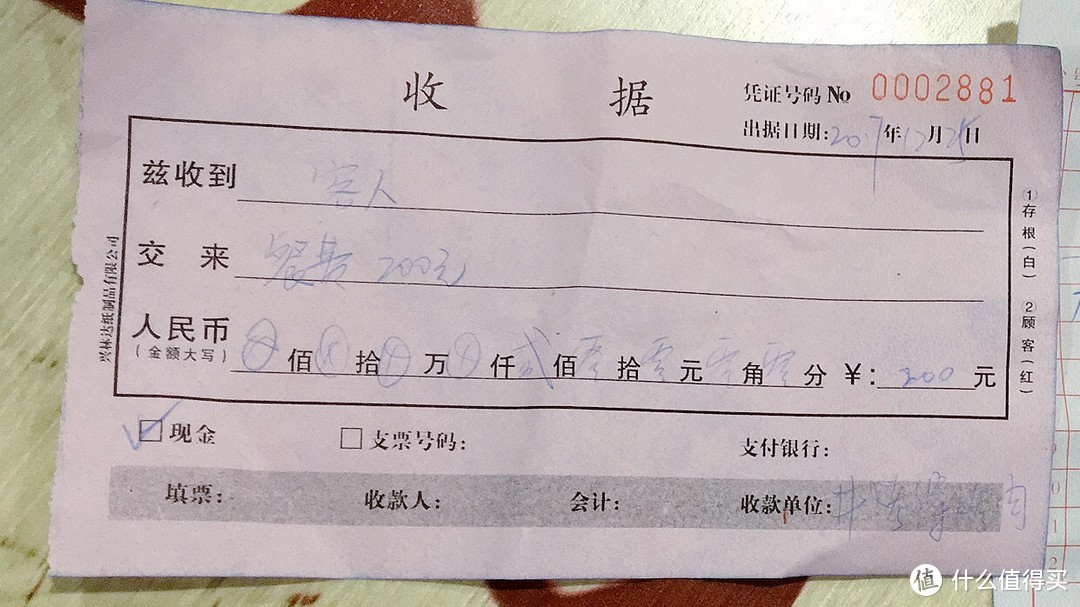 收 据
凭证号码 No 0002881
出据日期:2017年12月25日
兹收到 客人
交 来 餐费 200元
人民币
(金额大写)
⊗佰⊗拾⊗万⊗仟贰佰零拾零元零角零分 ¥:200元
☑现金 □支票号码: 支付银行:
填票: 收款人: 会计: 收款单位:
①存根(白) ②顾客(红)
兴林达纸制品有限公司
值 什么值得买